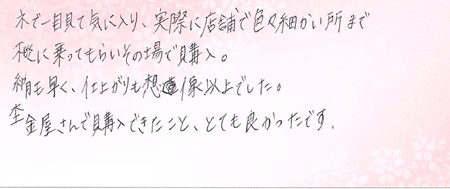 木で一目見て気に入り、実際に店舗で色々細かい所まで
相談に乗ってもらいその場で購入。
納期も早く、仕上がりも想像以上でした。
杢金屋さんで購入できたこと、とても良かったです。